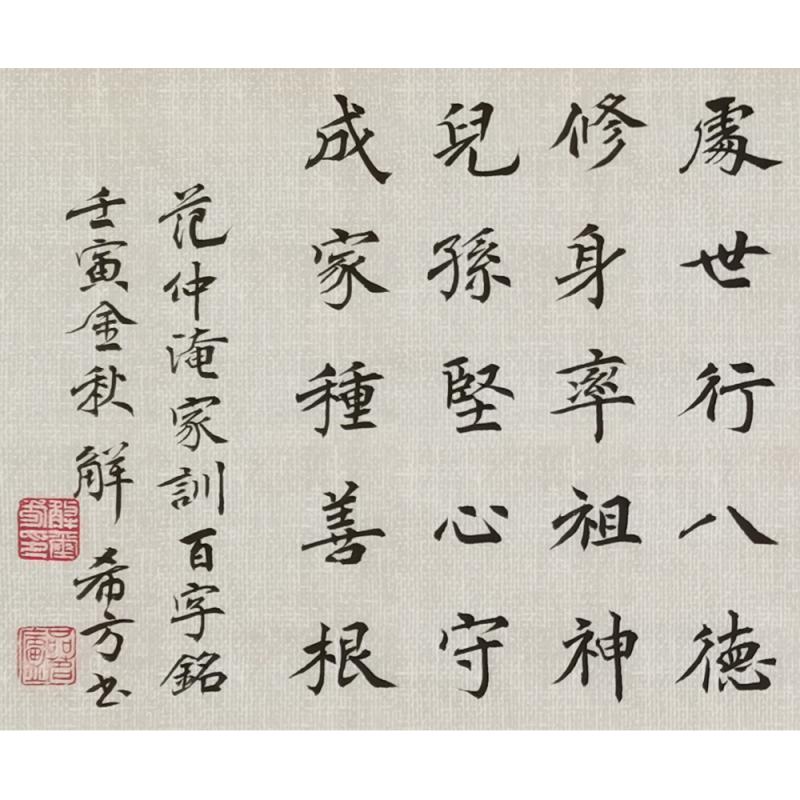 處世行八德
修身率祖神
兒孫堅心守
成家種善根
范仲淹家訓百字銘
壬寅金秋解希方书